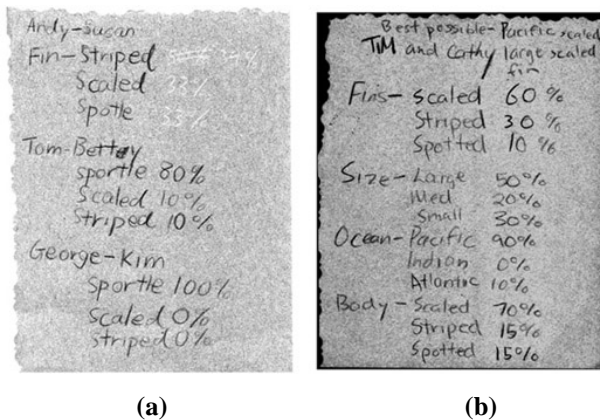 Andy-Susan
Fin-Striped
Scaled 33%
Spotle 33%
Tom-Bettey
sportle 80%
Scaled 10%
Striped 10%
George-Kim
sportle 100%
scaled 0%
striped 0%
(a)
Best possible- Pacific scaled
TIM and Cathy large scaled
fin
Fins- scaled 60%
Striped 30%
Spotted 10%
Size- Large 50%
Med 20%
Small 30%
Ocean- Pacific 90%
Indian 0%
Atlantic 10%
Body- Scaled 70%
Striped 15%
Spotted 15%
(b)